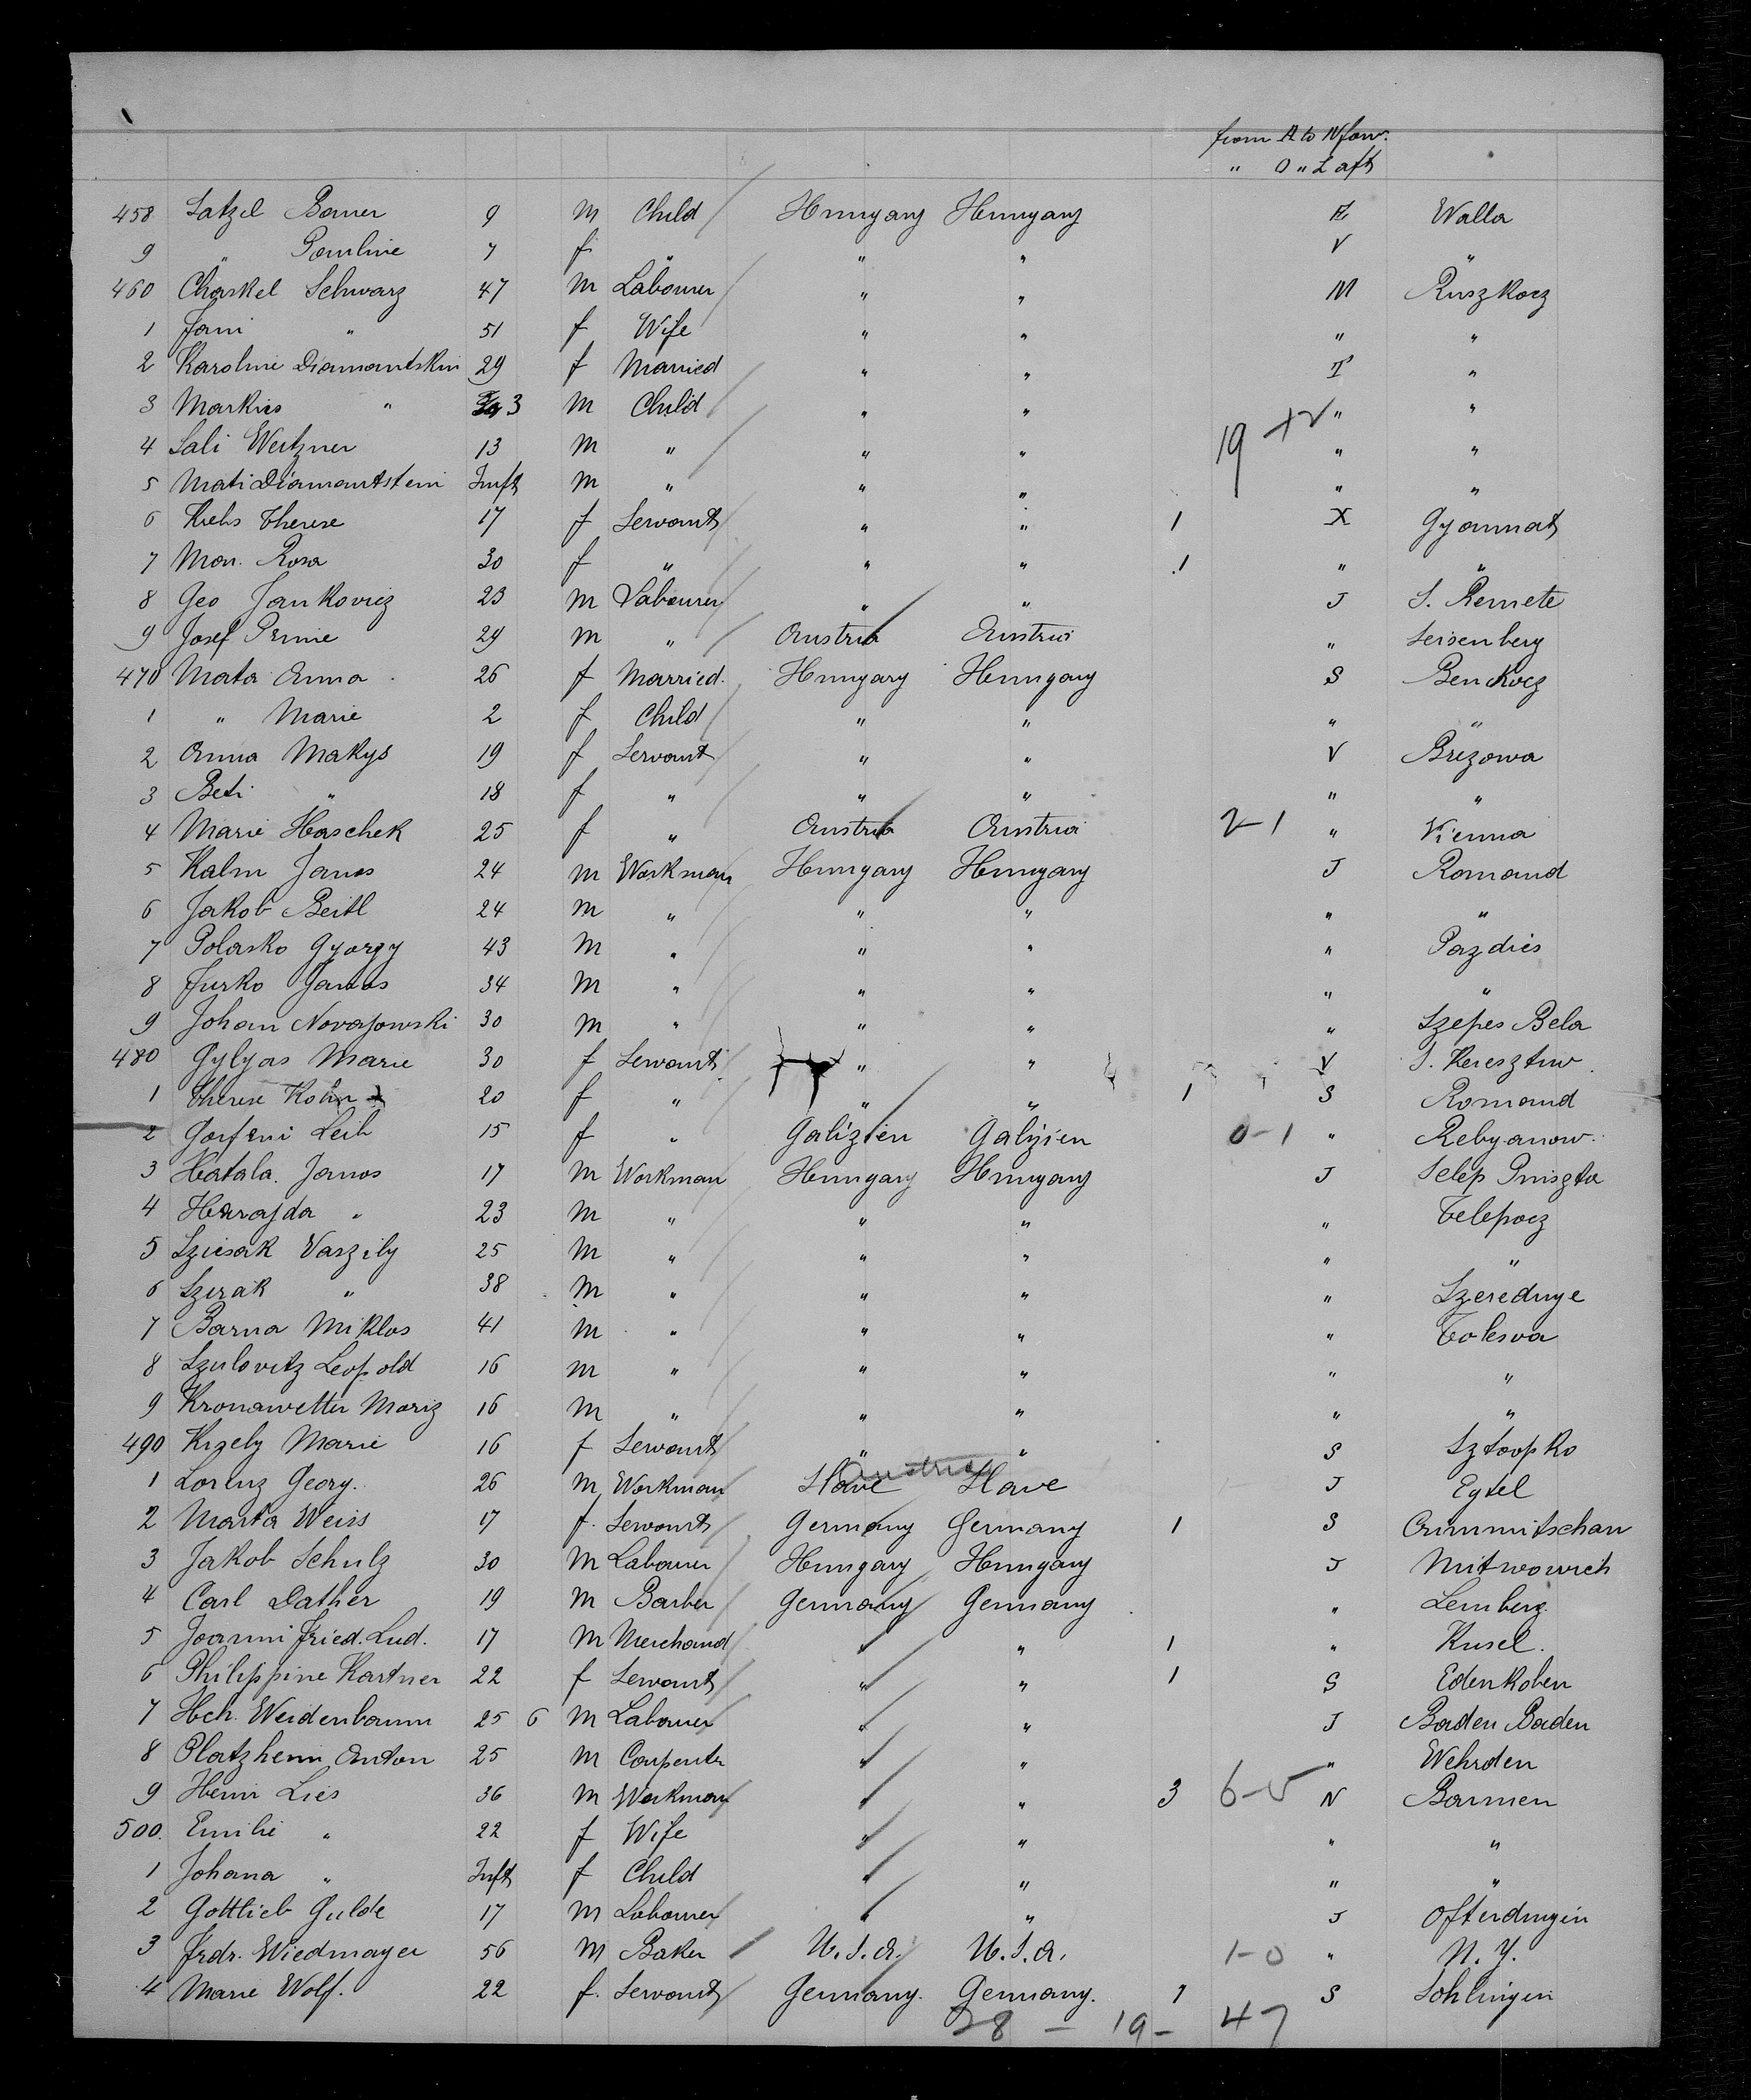 from A to N forw.
" O " Z aft
458 Latzel Bauer 9 m Child Hungary Hungary Z Walla
9 " Pauline 7 f " " " V "
460 Chaskel Schwarz 47 m Labourer " " M Ruszkocz
1 Fani " 51 f Wife " " " "
2 Karoline Diamantskin 29 f Married " " T "
3 Markies " 3 m Child " " " "
4 Sali Weitzner 13 m " " " 19 " "
5 Mati Diamantstein Inft m " " " " "
6 Krebs Therese 17 f Servant " " 1 X Gyanmat
7 Mon. Rosa 30 f " " " 1 " "
8 Geo Jankovicz 23 m Labourer " " J S. Remete
9 Josef Prinie 29 m " Austria Austria " Seisenberg
470 Mata Anna 26 f Married. Hungary Hungary S Benckocz
1 " Marie 2 f Child " " " "
2 Anna Makys 19 f Servant " " V Brezowa
3 Beti " 18 f " " " " "
4 Marie Haschek 25 f " Austria Austria 2-1 " Vienna
5 Kalm Janos 24 m Workman Hungary Hungary J Romand
6 Jakob Beitl 24 m " " " " "
7 Polasko Gyorgy 43 m " " " " Pazdics
8 Jurko Janos 34 m " " " " "
9 Johan Novajowski 30 m " " " " Szepes Bela
480 Gylyas Marie 30 f Servant " " V S. Keresztuv
1 Therese Kohn 20 f " " " 1 S Romand
2 Gorfeni Leib 15 f " Galizien Galizien 0-1 " Rebyanow
3 Hatala. Janos 17 m Workman Hungary Hungary J Selep Pniszta
4 Harajda " 23 m " " " " Telepocz
5 Sziesak Vaszily 25 m " " " " "
6 Szirak " 38 m " " " " Szerednye
7 Barna Miklos 41 m " " " " Tolesva
8 Szulovitz Leopold 16 m " " " " "
9 Kronawetter Moriz 16 m " " " " "
490 Krzely Marie 16 f Servant " " S Sztoopko
Austria
1 Lorenz Georg. 26 m Workman Slave Slave J Egtel
2 Marta Weiss 17 f. Servant Germany Germany 1 S Crimmitschau
3 Jakob Schulz 30 m Labourer Hungary Hungary J Mitwowich
4 Carl Dather 19 m Barber Germany Germany " Lemberg
5 Joanni Fried. Lud. 17 m Merchand " " 1 " Kusel.
6 Philippine Kartner 22 f Servant " " 1 S Edenkoben
7 Hch. Weidenbaum 25 6 m Labourer " " J Baden Baden
8 Platzheim Anton 25 m Carpenter " " " Wehrden
9 Henri Lies 36 m Workman " " 3 6-5 N Barmen
500. Emilie " 22 f Wife " " " "
1 Johana " Inft f Child " " " "
2 Gottlieb Gulde 17 m Labourer " " J Ofterdingin
3 Frdr. Wiedmayer 56 m Baker U.S.A. U.S.A. 1-0 " N.Y.
4 Marie Wolf. 22 f. Servant Germany. Germany. 1 S Sohlingen
28 - 19 - 47